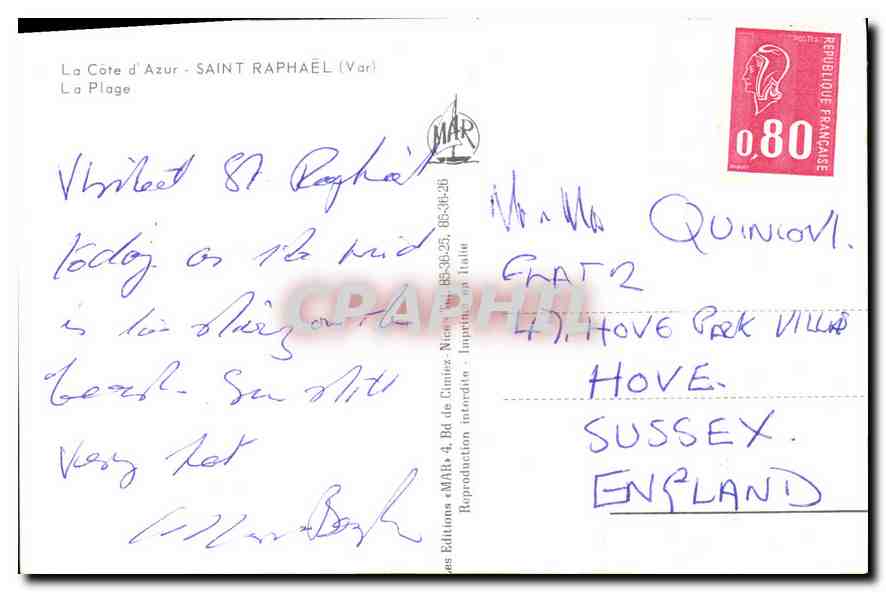 La Côte d'Azur - SAINT RAPHAËL (Var)
La Plage
MAR
POSTES
REPUBLIQUE FRANÇAISE
0,80
St. Raphael
today as the wind
is too strong on the
beach. Sun still
very hot
Les Editions «MAR» 4, Bd de Cimiez - Nice - Tél. 85-36-25, 85-36-26
Reproduction interdite - Imprimé en Italie
CPAPHIL
FLAT 2
47, HOVE PARK VILLAS
HOVE.
SUSSEX.
ENGLAND